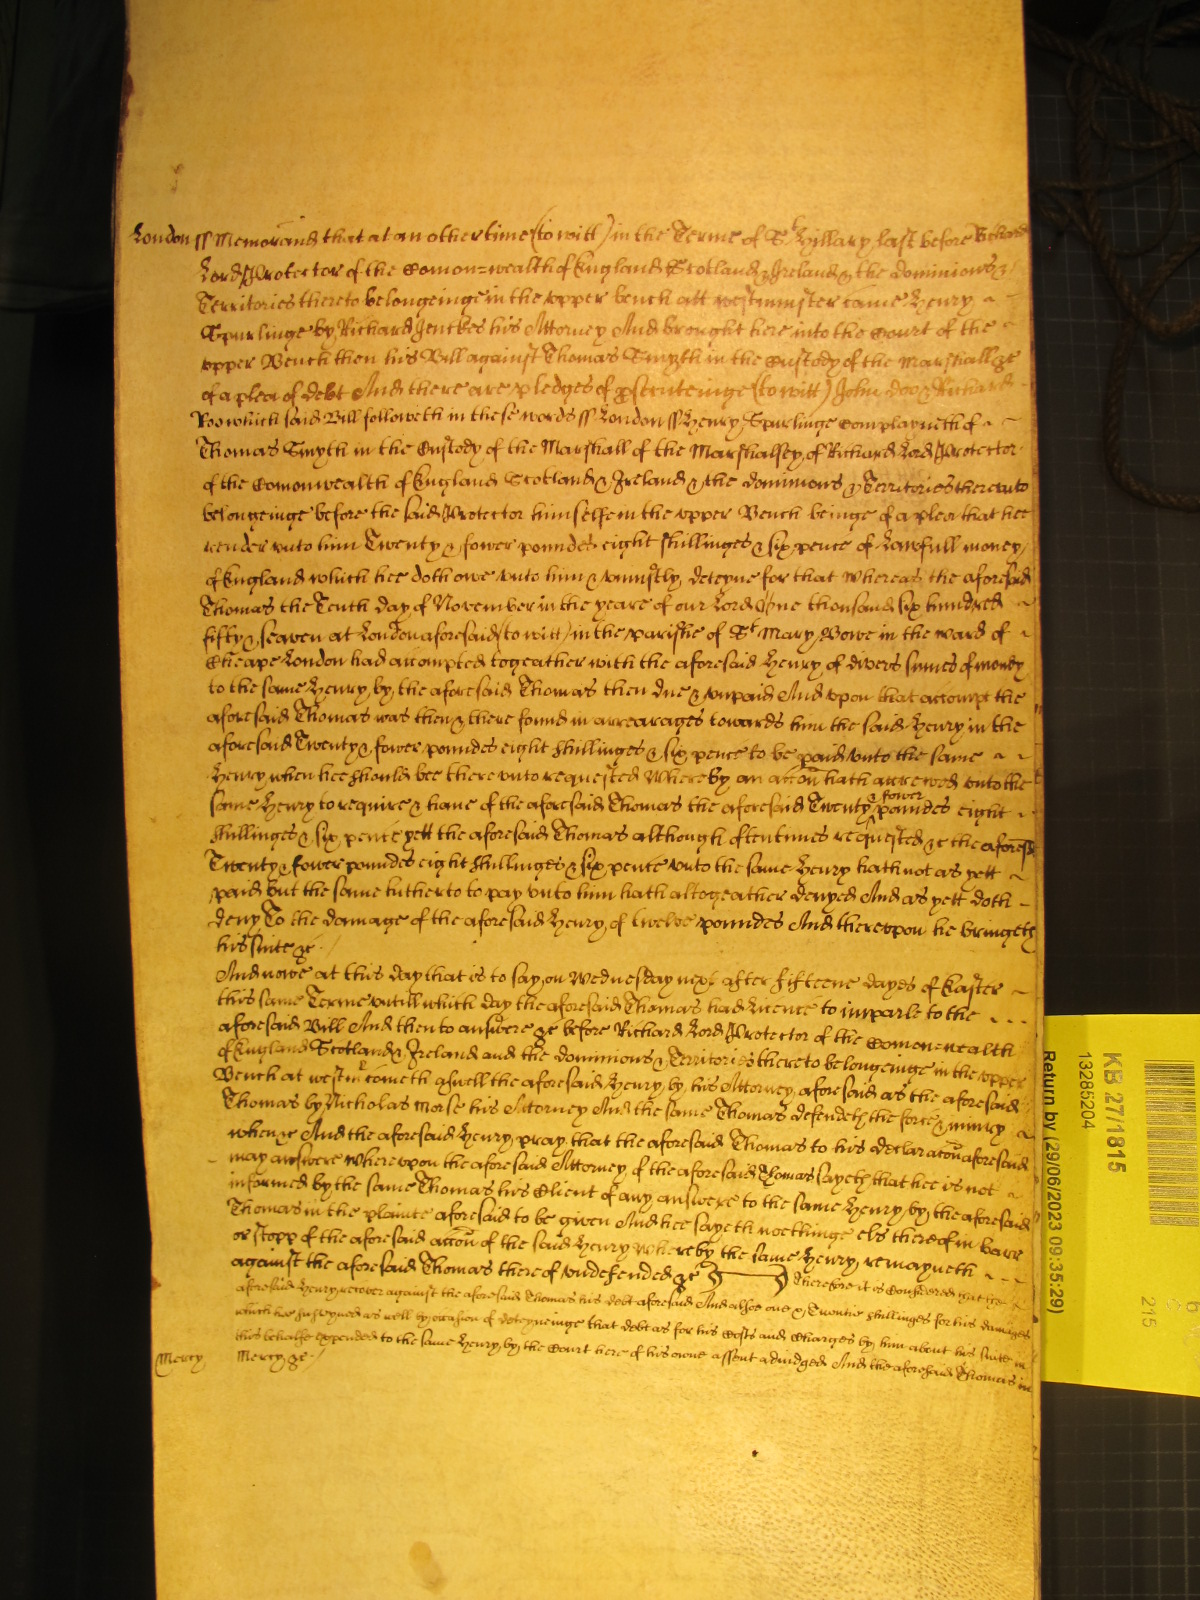 London ss Memorand that at an other time (to witt) in the Terme of St Hillary last before Richard
Lord Protector of the Comon=wealth of England Scotland & Ireland & the dominions &
Territories thereto belongeinge in the upper bench att westminster came Henry
Spurlinge by Richard Jenckes his Attorney And brought here into the Court of the
upper Bench then his Bill against Thomas Smyth in the Custody of the Marshall &c
of a plea of debt And there are pledges of prsecuteinge (to witt) John doo & Richard
Roo which said Bill followeth in these words ss London ss Henry Spurlinge Complayneth of
Thomas Smyth in the Custody of the Marshall of the Marshalsey of Richard Lord Protector
of the Comonwealth of England Scotland & Ireland & the dominions & Territories thereunto
belongeinge before the said Protector himselfe in the upper Bench beinge of a plea that hee
render unto him Twenty & fower poundes eight shillinges & six pence of Lawfull money
of England which hee doth owe unto him & uniustly deteyne for that Whereas the aforesaid
Thomas the Tenth day of November in the yeare of our Lord One thousand six hundred
fifty & seaven at London aforesaid (to witt) in the parishe of St Mary Bowe in the ward of
Cheape London had accompted togeather with the aforesaid Henry of divers sumes of money
to the same Henry by the aforesaid Thomas then due & unpaid And upon that accompt the
aforesaid Thomas was then & there found in arrearages towards him the said Henry in the
aforesaid Twenty & fower poundes eight shillinges & six pence to be paid unto the same
Henry when hee should bee there unto requested Whereby an accon hath accrewed unto the
same Henry to require & have of the aforesaid Thomas the aforesaid Twenty & fower poundes eight
shillinges & six pence yett the aforesaid Thomas although oftentimes requested &c the aforesd
Twenty & fower poundes eight shillinges & six pence unto the same Henry hath not as yett
paid but the same hitherto to pay unto him hath altogeather denyed And as yett doth
deny To the damage of the aforesaid Henry of twelve poundes And thereupon he bringeth
his suite &c
And nowe at this day that is to say on Wednesday next after fifteene dayes of Easter
this same Terme untill which day the aforesaid Thomas had licence to imparle to the
aforesaid Bill And then to answere &c before Richard Lord Protector of the Comonwealth
of England Scotland & Ireland and the dominions & Territories thereto belongeinge in the upper
Bench at westmr cometh aswell the aforesaid Henry by his Attorney aforesaid as the aforesaid
Thomas by Nicholas Morse his Attorney And the same Thomas defendeth the force & iniury
when &c And the aforesaid Henry pray that the aforesaid Thomas to his declaracon aforesaid
may answere Whereupon the aforesaid Attorney of the aforesaid Thomas sayeth that hee is not
informed by the same Thomas his Client of any answere to the same Henry by the aforesaid
Thomas in the plainte aforesaid to be given And hee sayeth nothinge els thereof in barr
or stopp of the aforesaid accon of the said Henry whereby the same Henry remayneth
against the aforesaid Thomas thereof undefended &c Therefore it is Considered that the
aforesaid Henry recover against the aforesaid Thomas his debt aforesaid And alsoe one & Twentie shillinges for his damages
which hee susteyned as well by occasion of deteyneinge that debt as for his Costs and Charges by him about his suite in
this behalfe expended to the same Henry by the Court here of his owne assent adiudged And the aforesaid Thomas in
Mercy Mercy &c
KB 27/1815
13285204
Return by (29/06/2023 09:35:29)
215